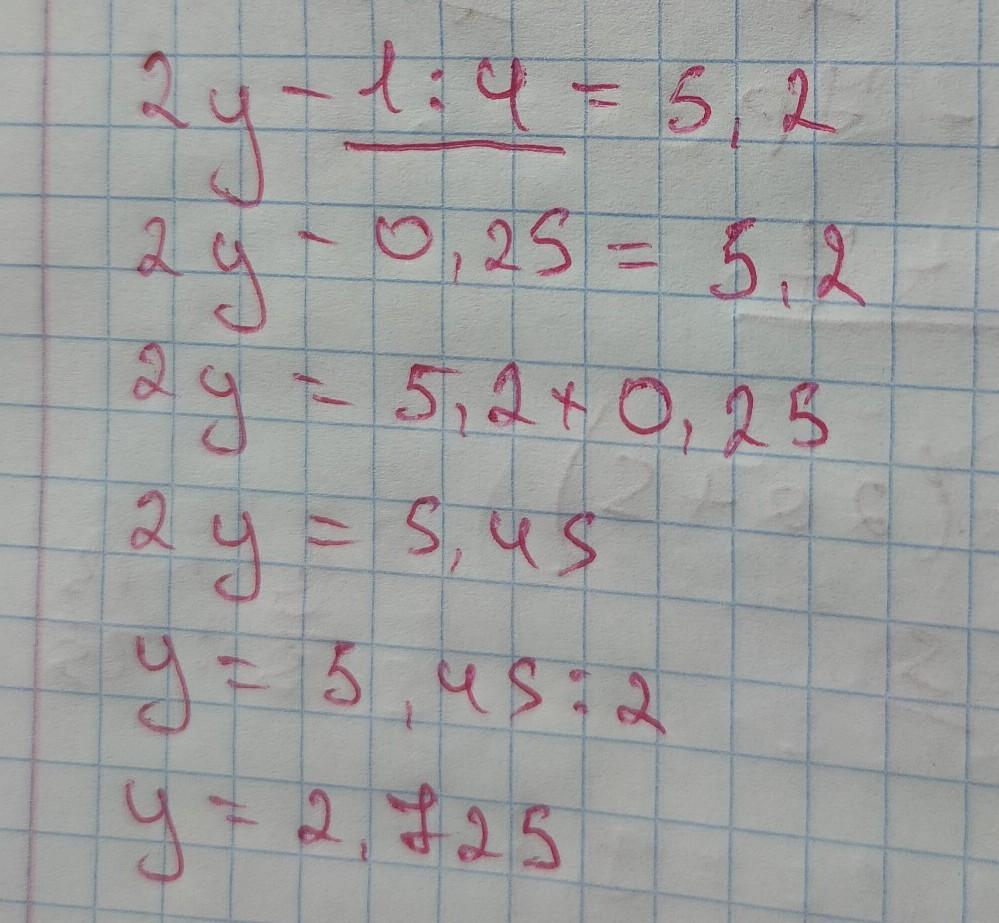 2y - 1:4 = 5,2
2y - 0,25 = 5,2
2y = 5,2 + 0,25
2y = 5,45
y = 5,45:2
y = 2,725